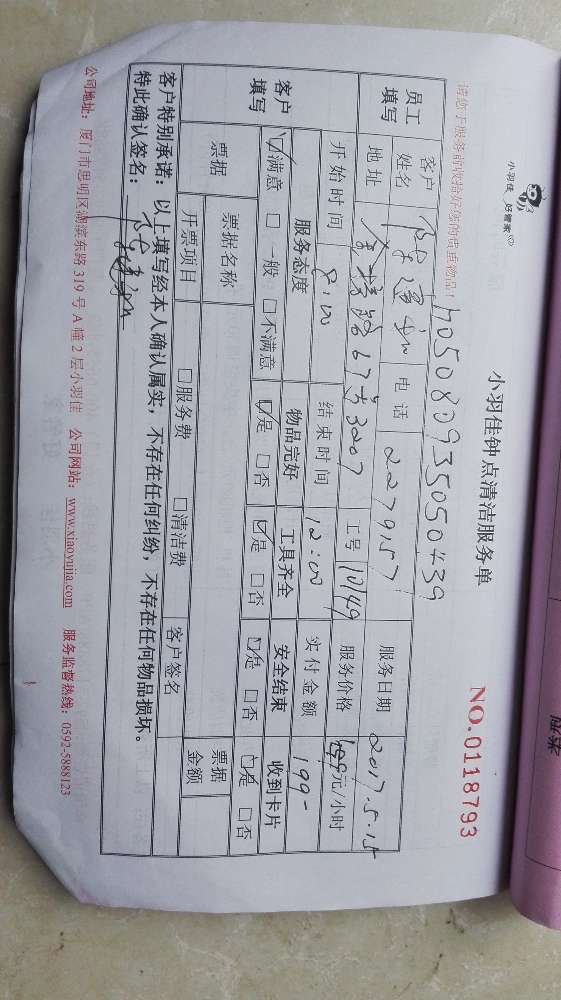 小羽佳 好管家
小羽佳钟点清洁服务单
NO.0118793
请您于服务前收拾好您的贵重物品!
1705080935050439
员工填写 客户姓名 电话 2279157 服务日期 2017.5.15
地址 金榜路67号3207 工号 10149 服务价格 元/小时
开始时间 8:00 结束时间 12:00 实付金额 199-
客户填写 服务态度 物品完好 工具齐全 安全结束 收到卡片
☑满意 □一般 □不满意 ☑是 □否 ☑是 □否 ☑是 □否 ☑是 □否
票据 票据名称 客户签名 票据金额
开票项目 □服务费 □清洁费
客户特别承诺:以上填写经本人确认属实,不存在任何纠纷,不存在任何物品损坏。
特此确认签名:
公司地址:厦门市思明区湖滨东路319号A幢2层小羽佳 公司网站:www.xiaoyujia.com 服务监督热线:0592-5888123